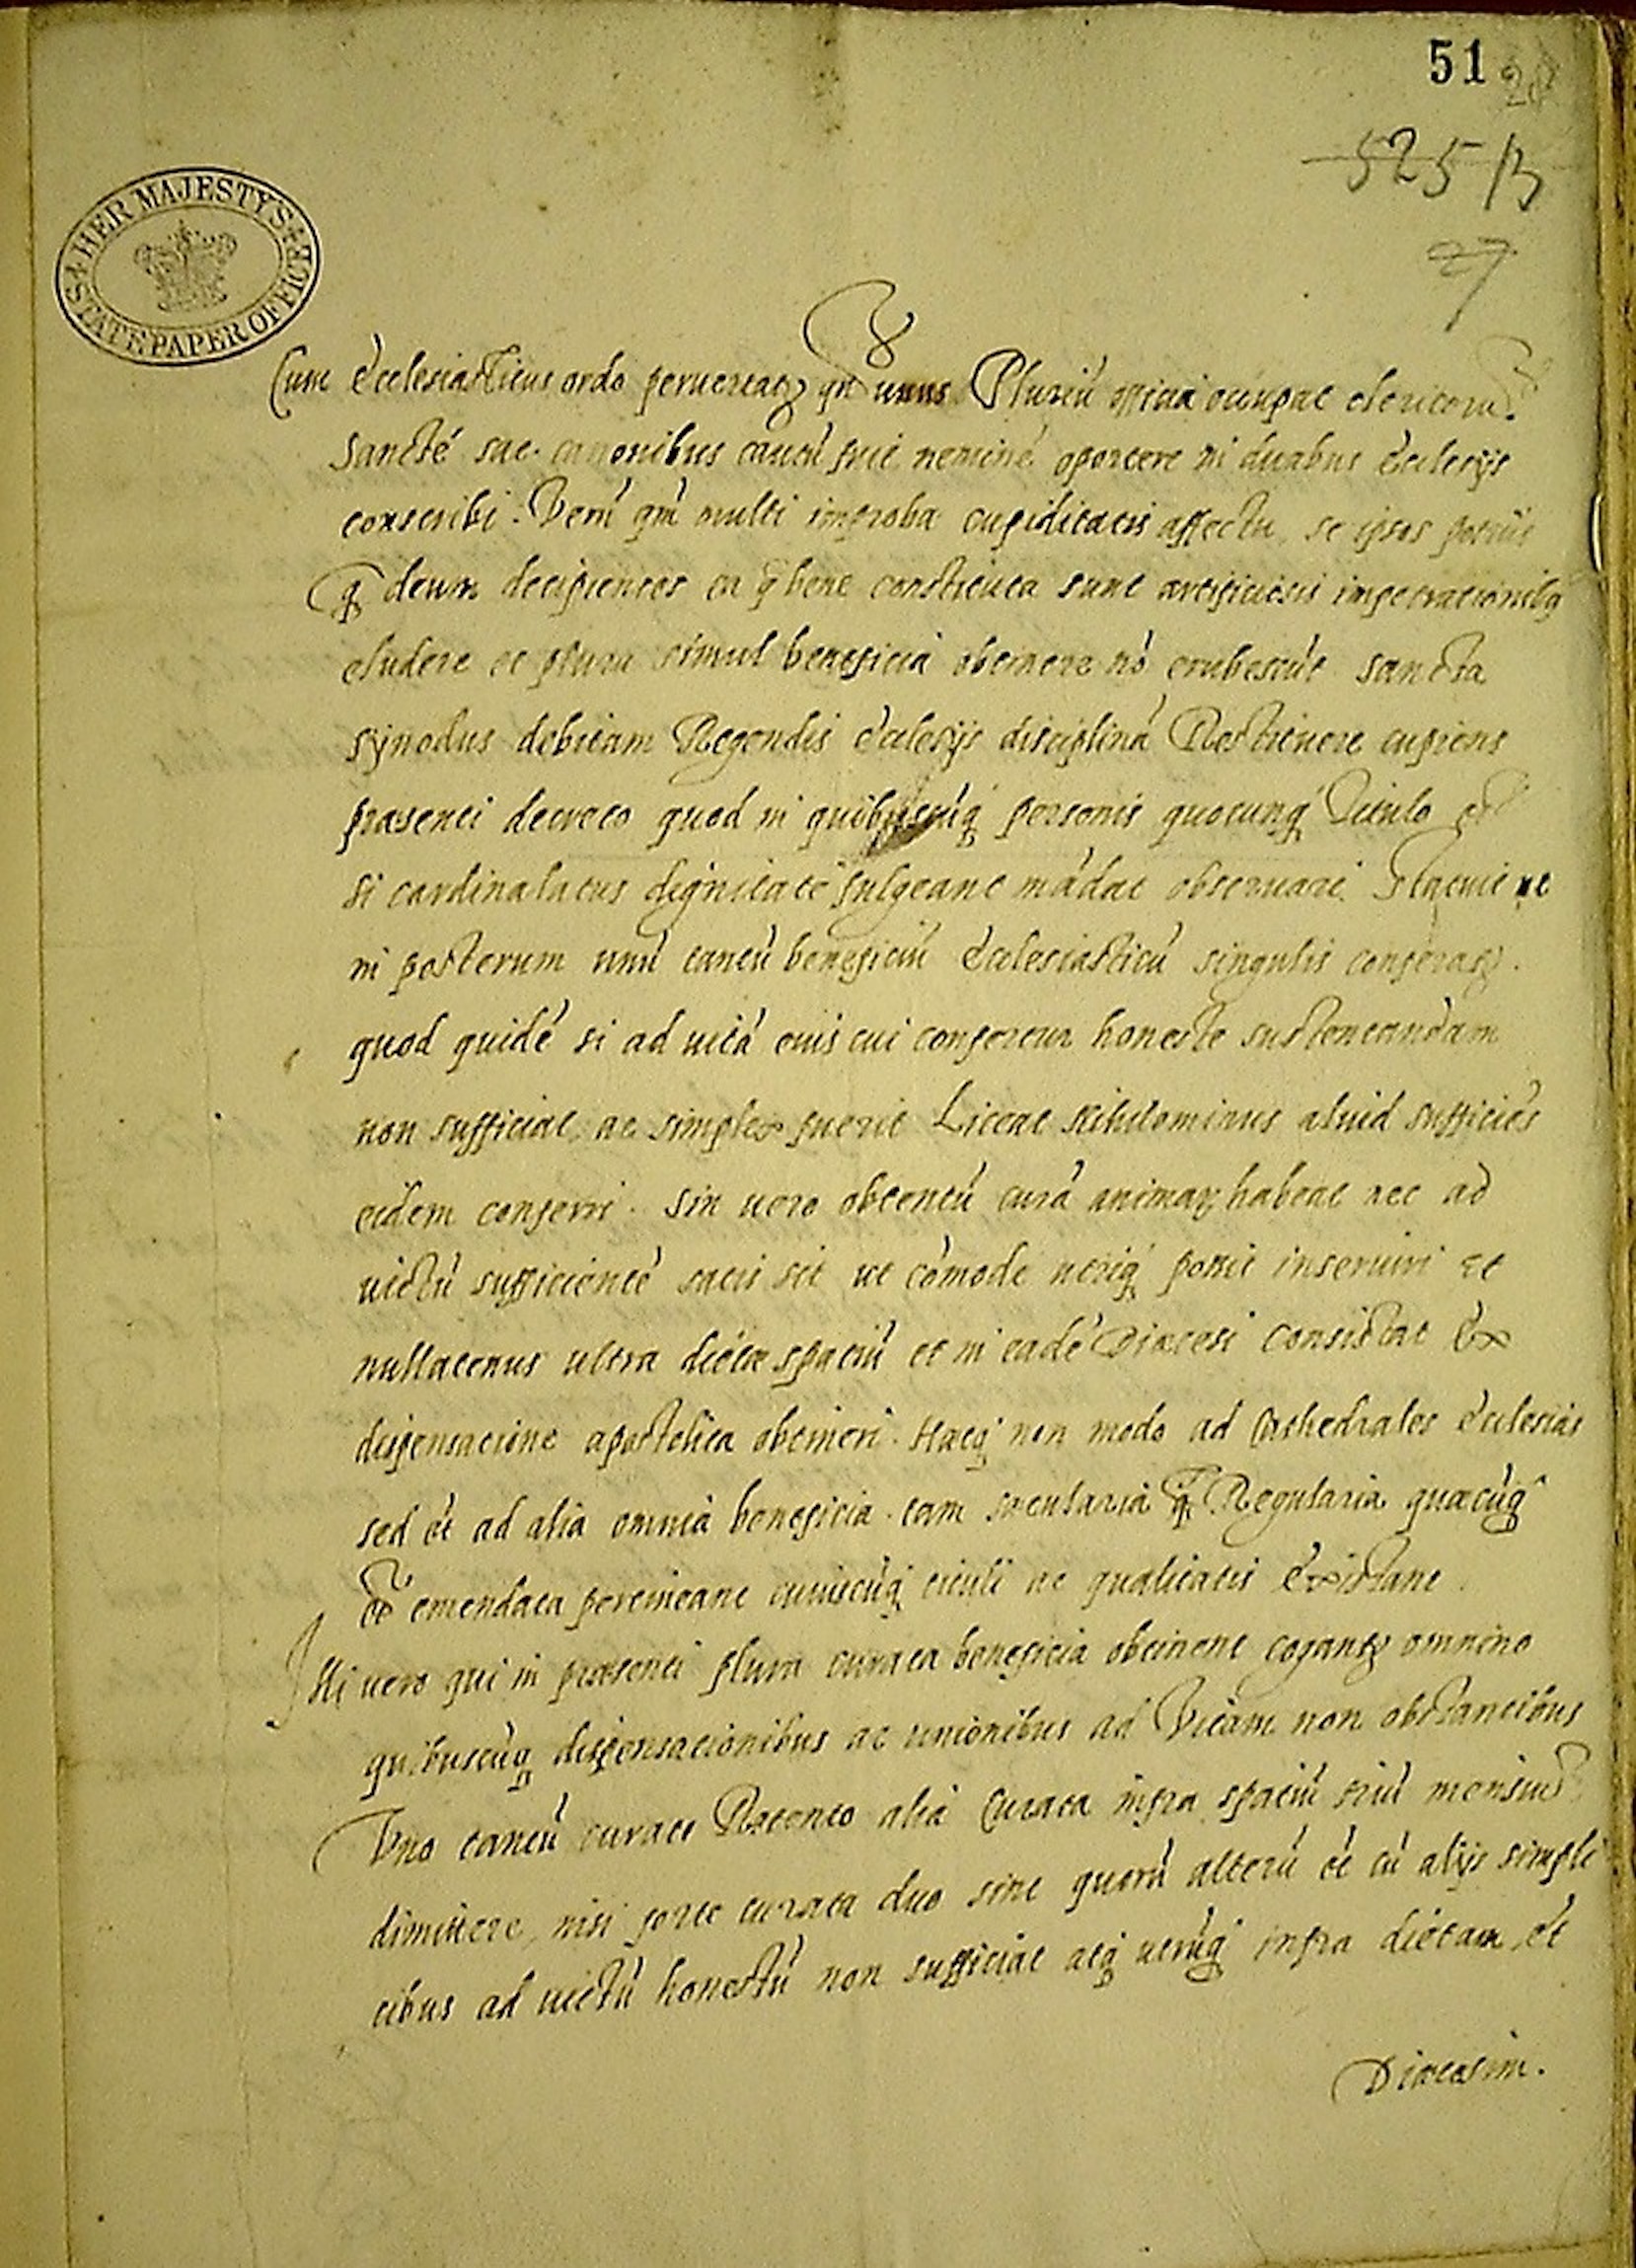 51 28
525 B
27
HER MAJESTY'S STATE PAPER OFFICE
Cum Ecclesiasticus ordo peruertat~ qn̄ unus Pluriū officia occupat clericorū.
Sancté sac. canonibus cautū fuit neminē oportere in duabus Ecclesijs
conscribi. Verū qm̄ multi improba cupiditatis affectu, se ipsos potiūs
q̄ deum decipientes ea q̄ bene constituta sunt artificiosis impetrationibq
eludere et plura simul beneficia obtinere nō erubescūt sancta
synodus debitam Regendis Ecclesijs disciplinā Restituere cupiens
præsenti decreto quod in quibuscūq personis quocunq Titulo et
si cardinalatus dignitate fulgeant mādat obseruari. Statuit ut
in posterum unū tantū beneficiū Ecclesiasticū singulis conferat~.
quod quidē si ad uitā eius cui confertur honeste sustentandam
non sufficiat, ac simplex fuerit Liceat Nihilominus aliud sufficiēs
eidem conferri. Sin uero obtentū curā animaꝝ habeat nec ad
uictū sufficientē satis sit ut cōmode utriq possit inseruiri et
nullatenus ultra dietæ spatiū et in eadē Diæcesi consistat Ex
dispensatione apostolica obtineri. Hæcq non modo ad Cathedrales Ecclesias
sed ēt ad alia omnia beneficia tam sæcularia q̄ Regularia quæcūq
et cōmendata pertineant cuiuscūq tituli ac qualitatis Existant.
Illi uero qui in præsenti plura curata beneficia obtinent cogant~ omnino
quibuscūq dispensationibus ac unionibus ad Vitam non obstantibus
Vno tantū curato Retento alia Curata infra spatiū triū mensiū
dimittere, nisi forte curata duo sint quorū alterū ēt cū alijs simpli
cibus ad uictū honestū non sufficiat atq utrūq infra dietam, et
Diæcesim.